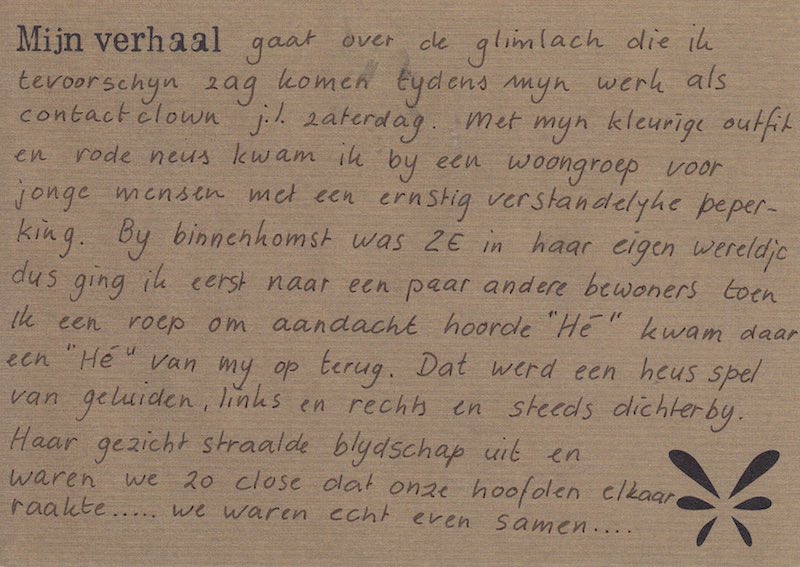 Mijn verhaal gaat over de glimlach die ik
tevoorschyn zag komen tydens myn werk als
contactclown j.l. zaterdag. Met myn kleurige outfit
en rode neus kwam ik by een woongroep voor
jonge mensen met een ernstig verstandelyke peper-
king. By binnenkomst was ZE in haar eigen wereldje
dus ging ik eerst naar een paar andere bewoners toen
ik een roep om aandacht hoorde "Hé" kwam daar
een "Hé" van my op terug. Dat werd een heus spel
van geluiden, links en rechts en steeds dichterby.
Haar gezicht straalde blydschap uit en
waren we zo close dat onze hoofden elkaar
raakte..... we waren echt even samen....